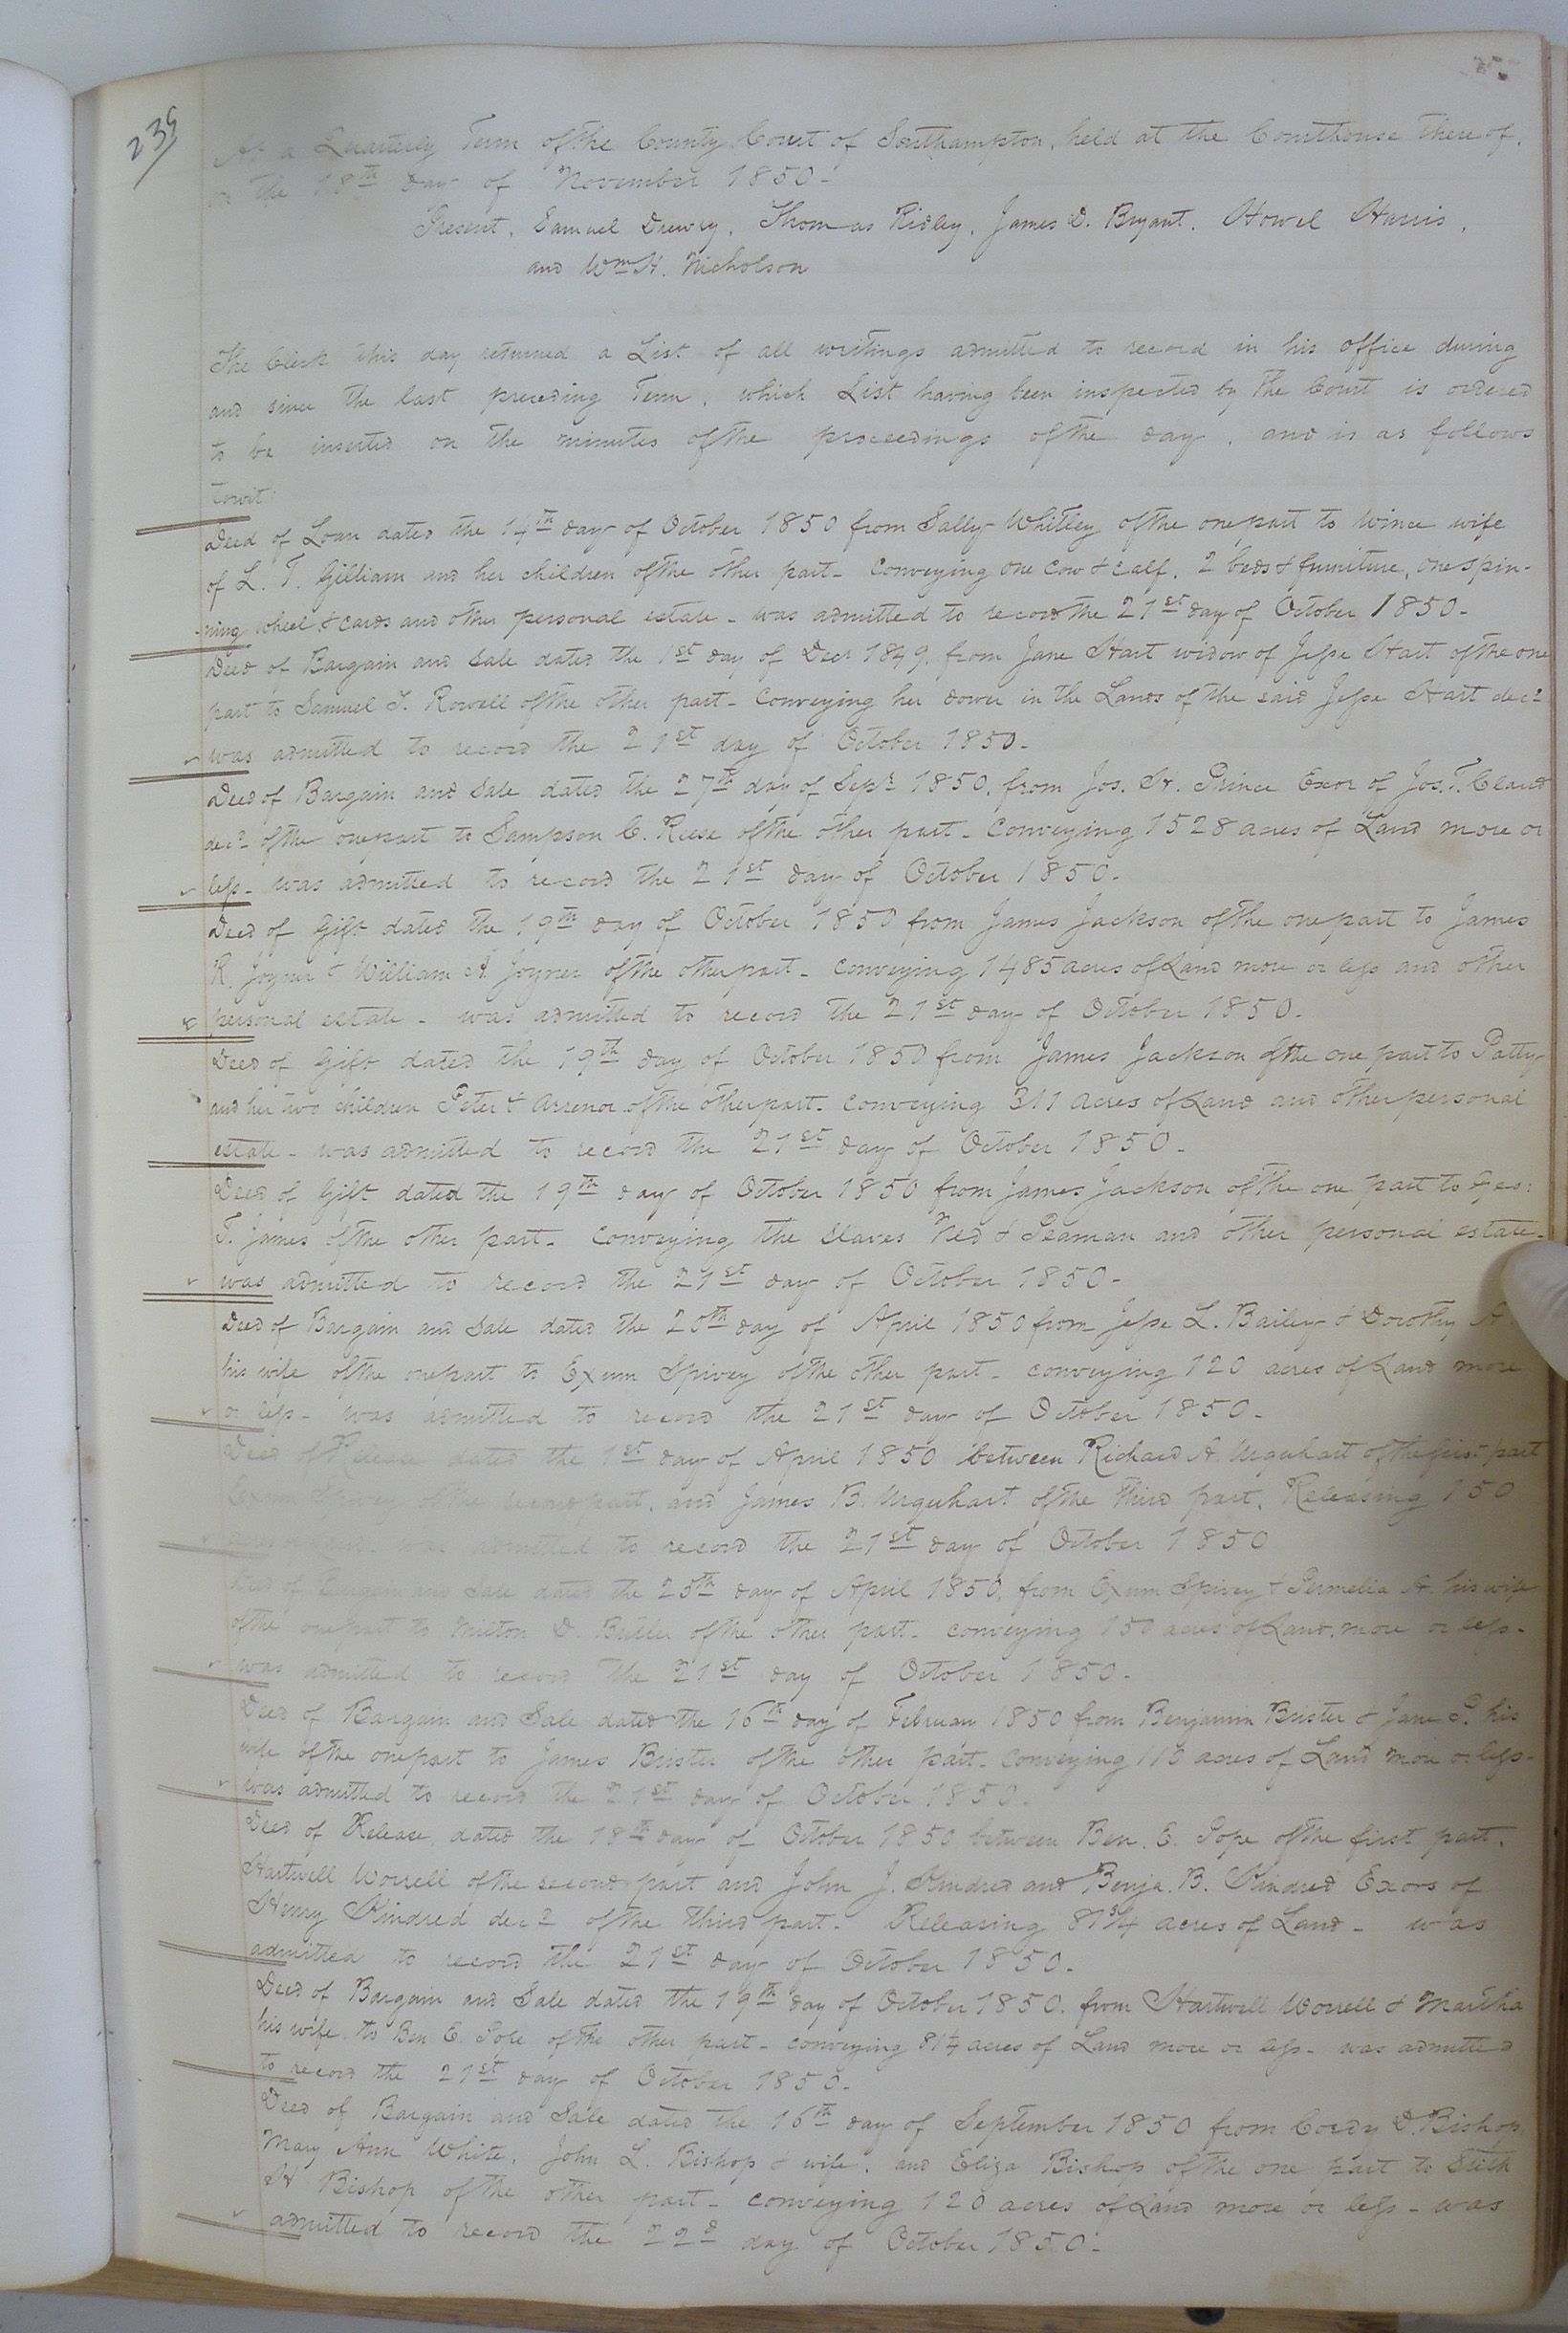 239
At a Quarterly Term of the County Court of Southampton, held at the Courthouse thereof,
on the 18th day of November 1850-
Present. Samuel Drewry, Thomas Ridley, James D. Bryant, Howel Harris,
and Wm H. Nicholson
The Clerk this day returned a List of all writings admitted to record in his office during
and since the last preceding Term, which List having been inspected by the Court is ordered
to be inserted on the minutes of the proceedings of the day, and is as follows
towit:
Deed of Loan dated the 14th day of October 1850 from Sally Whitley of the one part to Wince wife
of L. T. Gilliam and her children of the other part- conveying one cow & calf, 2 beds & furniture, one spin-
-ning wheel & cards and other personal estate- was admitted to record the 21st day of October 1850-
Deed of Bargain and Sale dated the 1st day of Decr 1849, from Jane Hart widow of Jesse Hart of the one
part to Samuel T. Rowell of the other part- conveying her dower in the Lands of the said Jesse Hart decd
was admitted to record the 21st day of October 1850-
Deed of Bargain and Sale dated the 27th day of Sept 1850, from Jos. H. Prince Exor of Jos. T. Claud
decd of the one part to Sampson C. Reese of the other part- conveying 1528 acres of Land more or
less- was admitted to record the 21st day of October 1850-
Deed of Gift dated the 19th day of October 1850 from James Jackson of the one part to James
R. Joyner & William A. Joyner of the other part- conveying 1485 acres of Land more or less and other
personal estate- was admitted to record the 21st day of October 1850-
Deed of Gift dated the 19th day of October 1850 from James Jackson of the one part to Patty
and her two children Peter & Arrenor of the other part- conveying 311 acres of Land and other personal
estate- was admitted to record the 21st day of October 1850-
Deed of Gift dated the 19th day of October 1850 from James Jackson of the one part to Geo:
T. James of the other part- conveying the slaves Ned & Seaman and other personal estate-
was admitted to record the 21st day of October 1850-
Deed of Bargain and Sale dated the 20th day of April 1850 from Jesse L. Bailey & Dorothy A
his wife of the one part to Exum Spivey of the other part- conveying 120 acres of Land more
or less- was admitted to record the 21st day of October 1850-
Deed of Release dated the 1st day of April 1850 between Richard A. Urquhart of the first part
Exum Spivey of the second part, and James B. Urquhart of the third part, Releasing 150
acres of Land was admitted to record the 21st day of October 1850
Deed of Bargain and Sale dated the 25th day of April 1850, from Exum Spivey & Permelia A. his wife
of the one part to Milton D. Butler of the other part- conveying 150 acres of Land more or less-
was admitted to record the 21st day of October 1850-
Deed of Bargain and Sale dated the 16th day of February 1850 from Benjamin Brister & Jane P. his
wife of the one part to James Brister of the other part- conveying 110 acres of Land more or less-
was admitted to record the 21st day of October 1850-
Deed of Release, dated the 18th day of October 1850 between Ben. E. Pope of the first part,
Hartwell Worrell of the second part and John J. Kindred and Benja. B. Kindred Exors of
Henry Kindred decd of the third part- Releasing 81 3/4 acres of Land- was
admitted to record the 21st day of October 1850-
Deed of Bargain and Sale dated the 19th day of October 1850, from Hartwell Worrell & Martha
his wife to Ben E. Pope of the other part- conveying 81 1/4 acres of Land more or less- was admitted
to record the 21st day of October 1850-
Deed of Bargain and Sale dated the 16th day of September 1850 from Cordy D. Bishop,
Mary Ann White, John L. Bishop & wife, and Eliza Bishop of the one part to Stith
H Bishop of the other part- conveying 120 acres of Land more or less- was
admitted to record the 22d day of October 1850-